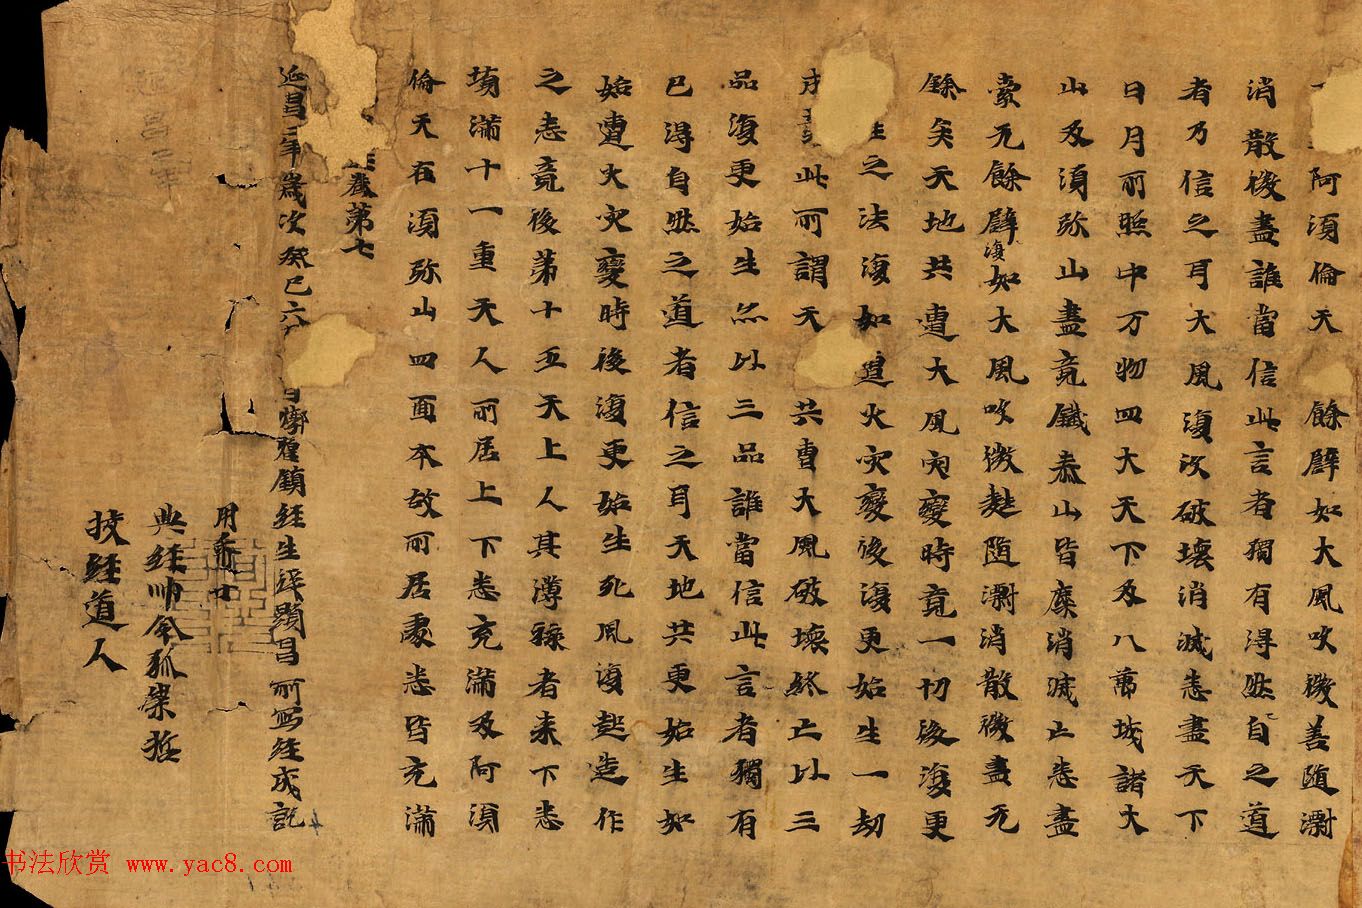 阿須倫天餘譬如大風吹微善随潸
消散微盡誰當信此言者獨有得然自之道
者乃信之耳大風復次破壞消滅悉盡天下
日月所照中万物四大天下及八萬城諸大
山及須弥山盡竟鐵恭山皆糜消滅亡悉盡
索无餘譬復如大風吹微麩随潸消散微盡无
餘矣天地共遭大風灾變時竟一切後復更
生之法復如遭火灾變後復更始生一劫
此所謂天共曹大風破壞終亡以三
品復更始生尒以三品誰當信此言者獨有
已得自然之道者信之耳天地共更始生如
始遭火灾變時後復更始生死風復起造作
之悉竟後第十五天上人其薄祿者来下悉
填滿十一重天人所居上下悉充滿及阿須
倫天在須弥山四面本故所居處悉皆充滿
卷第七
延昌二年歲次癸巳六燉煌鎮經生張顯昌所寫經成訖
用
典經帥令狐崇哲
挍經道人
书法欣赏 www.yac8.com